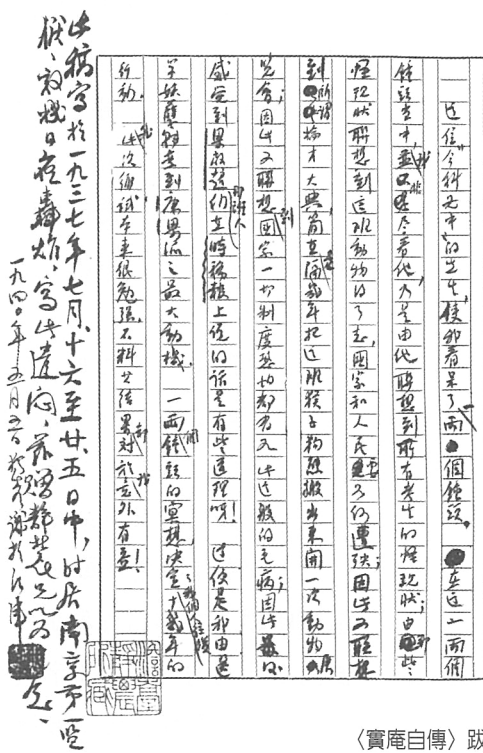 這位“今科狀元”的先生，使我看呆了一兩個鐘頭。在這一兩個
鐘頭當中，我並非儘看他，乃是由他聯想到所有考生的怪現狀；由那些
怪現狀聯想到這班動物得了志，國家和人民要如何遭殃；因此又聯想
到所謂掄才大典，簡直是隔幾年把這班猴子狗熊搬出來開一次動物展
覽會；因此又聯想到國家一切制度恐怕都有如此這般的毛病；因此最後
感覺到梁啟超那班人們在時務報上說的話是有些道理呀！這便是我由選
學妖孽轉變到康梁派之最大動機。一兩個鐘頭的冥想，決定了我個人往後十幾年的
行動。我此次鄉試本來很勉強，不料其結果卻對於我意外有益！
此稿寫於一九三七年七月十六至廿五日中，時居南京第一監
獄，敵機日夜轟炸，寫此遣悶，
一九四〇年五月五日
〈實庵自傳〉跋